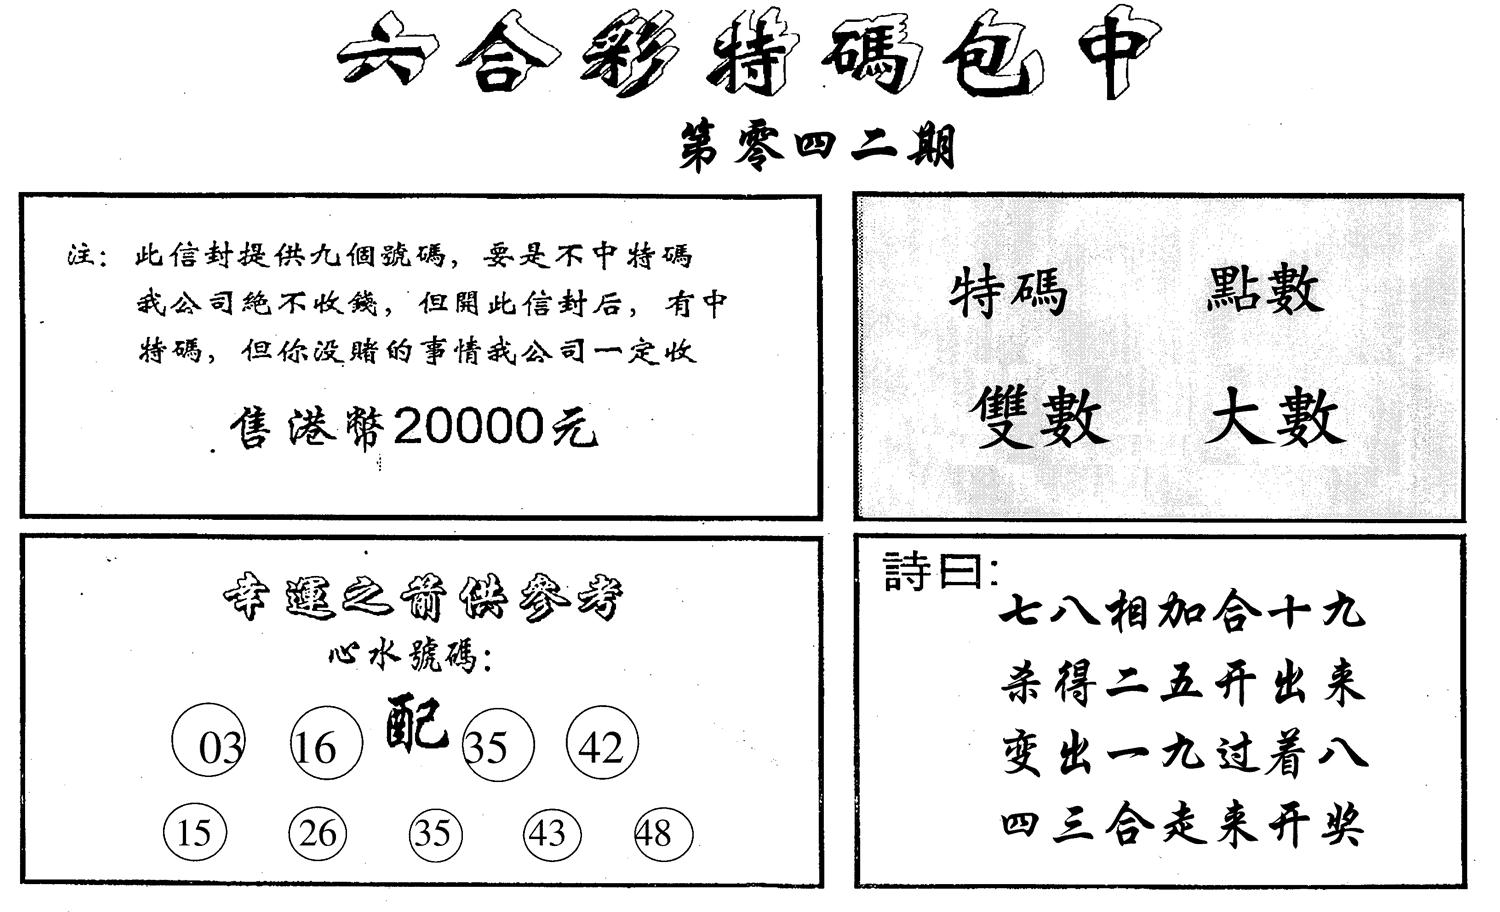 六合彩特碼包中
第零四二期
注：此信封提供九個號碼，要是不中特碼
我公司絕不收錢，但開此信封后，有中
特碼，但你没賭的事情我公司一定收
售港幣20000元
特碼 點數
雙數 大數
幸運之箭供參考
心水號碼：
03 16 配 35 42
15 26 35 43 48
詩曰：
七八相加合十九
杀得二五开出来
变出一九过着八
四三合走来开奖